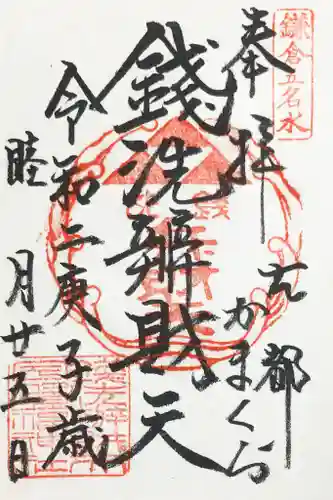 鎌倉五名水
奉拝
古都
かまくら
銭洗辯財天
令和二庚子歳
睦月廿五日